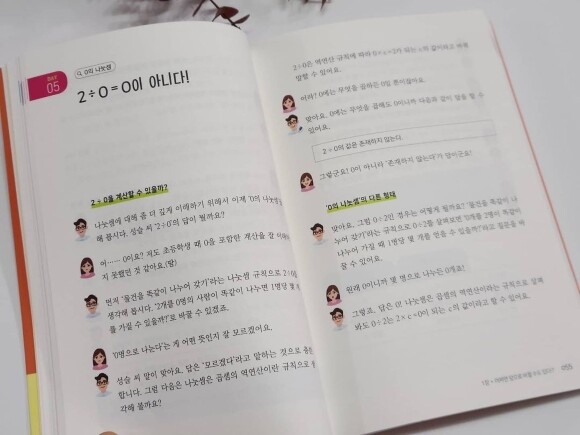 DAY
05
0의 나눗셈
2÷0=0이 아니다!
2÷0을 계산할 수 있을까?
나눗셈에 대해 좀 더 깊게 이해하기 위해서 이제 '0의 나눗셈'
해 봅시다. 성숙 씨 '2÷0'의 답이 뭘까요?
어…… 0이요? 저도 초등학생 때 0을 포함한 계산을 잘 이해하
지 못했던 것 같아요.(땀)
먼저 '물건을 똑같이 나누어 갖기'라는 나눗셈 규칙으로 2÷0을
생각해 봅시다. '2개를 0명의 사람이 똑같이 나누면 1명당 몇
를 가질 수 있을까?'로 바꿀 수 있겠죠.
'0명으로 나눈다'는 게 어떤 뜻인지 잘 모르겠어요.
성숙 씨 말이 맞아요. 답은 '모르겠다'라고 말하는 것으로 충분
합니다. 그럼 다음은 나눗셈은 곱셈의 역연산이란 규칙으로 생
각해 볼까요?
2÷0은 역연산 규칙에 따라 0×c=2가 되는 c의 값이라고 바꿔
말할 수 있어요.
어라? 0에는 무엇을 곱하든 0일 뿐이잖아요.
맞아요. 0에는 무엇을 곱해도 0이니까 다음과 같이 말할 수
있어요.
2÷0의 값은 존재하지 않는다.
그렇군요! 0이 아니라 '존재하지 않는다'가 답이군요!
'0의 나눗셈'의 다른 형태
맞아요. 그럼 0÷2인 경우는 어떻게 될까요? '물건을 똑같이 나
누어 갖기'라는 규칙으로 0÷2를 살펴보면 '0개를 2명이 똑같이
나누어 가질 때 1명당 몇 개를 얻을 수 있을까?'라고 질문을 바
꿀 수 있어요.
원래 0이니까 몇 명으로 나누든 0개죠!
그렇죠. 답은 0! 나눗셈은 곱셈의 역연산이라는 규칙으로 살펴
봐도 0÷2는 2×c=0이 되는 c의 값이라고 할 수 있어요.
055